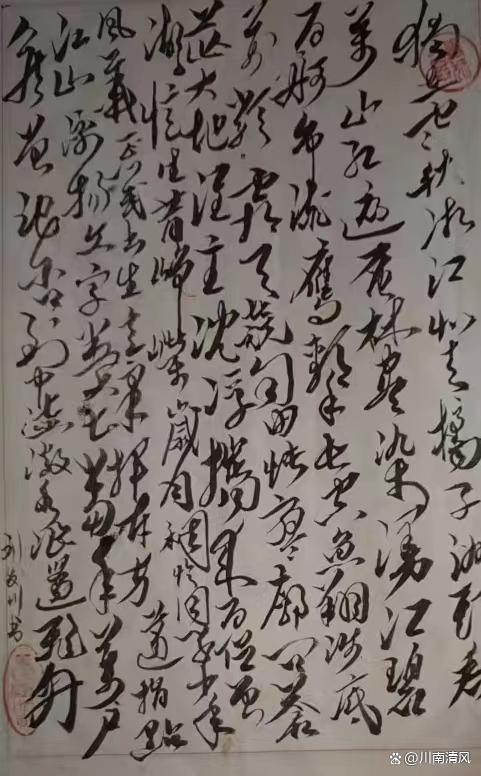 独立寒秋湘江北去橘子洲头看
万山红遍层林尽染漫江碧
百舸争流鹰击长空鱼翔浅底
万类霜天竞自由怅寥廓问苍
茫大地谁主沉浮携来百侣曾
游忆往昔峥嵘岁月稠恰同学少年
风华正茂书生意气挥斥方遒指点
江山激扬文字粪土当年万户
侯曾记否到中流击水浪遏飞舟
川书
@川南清风